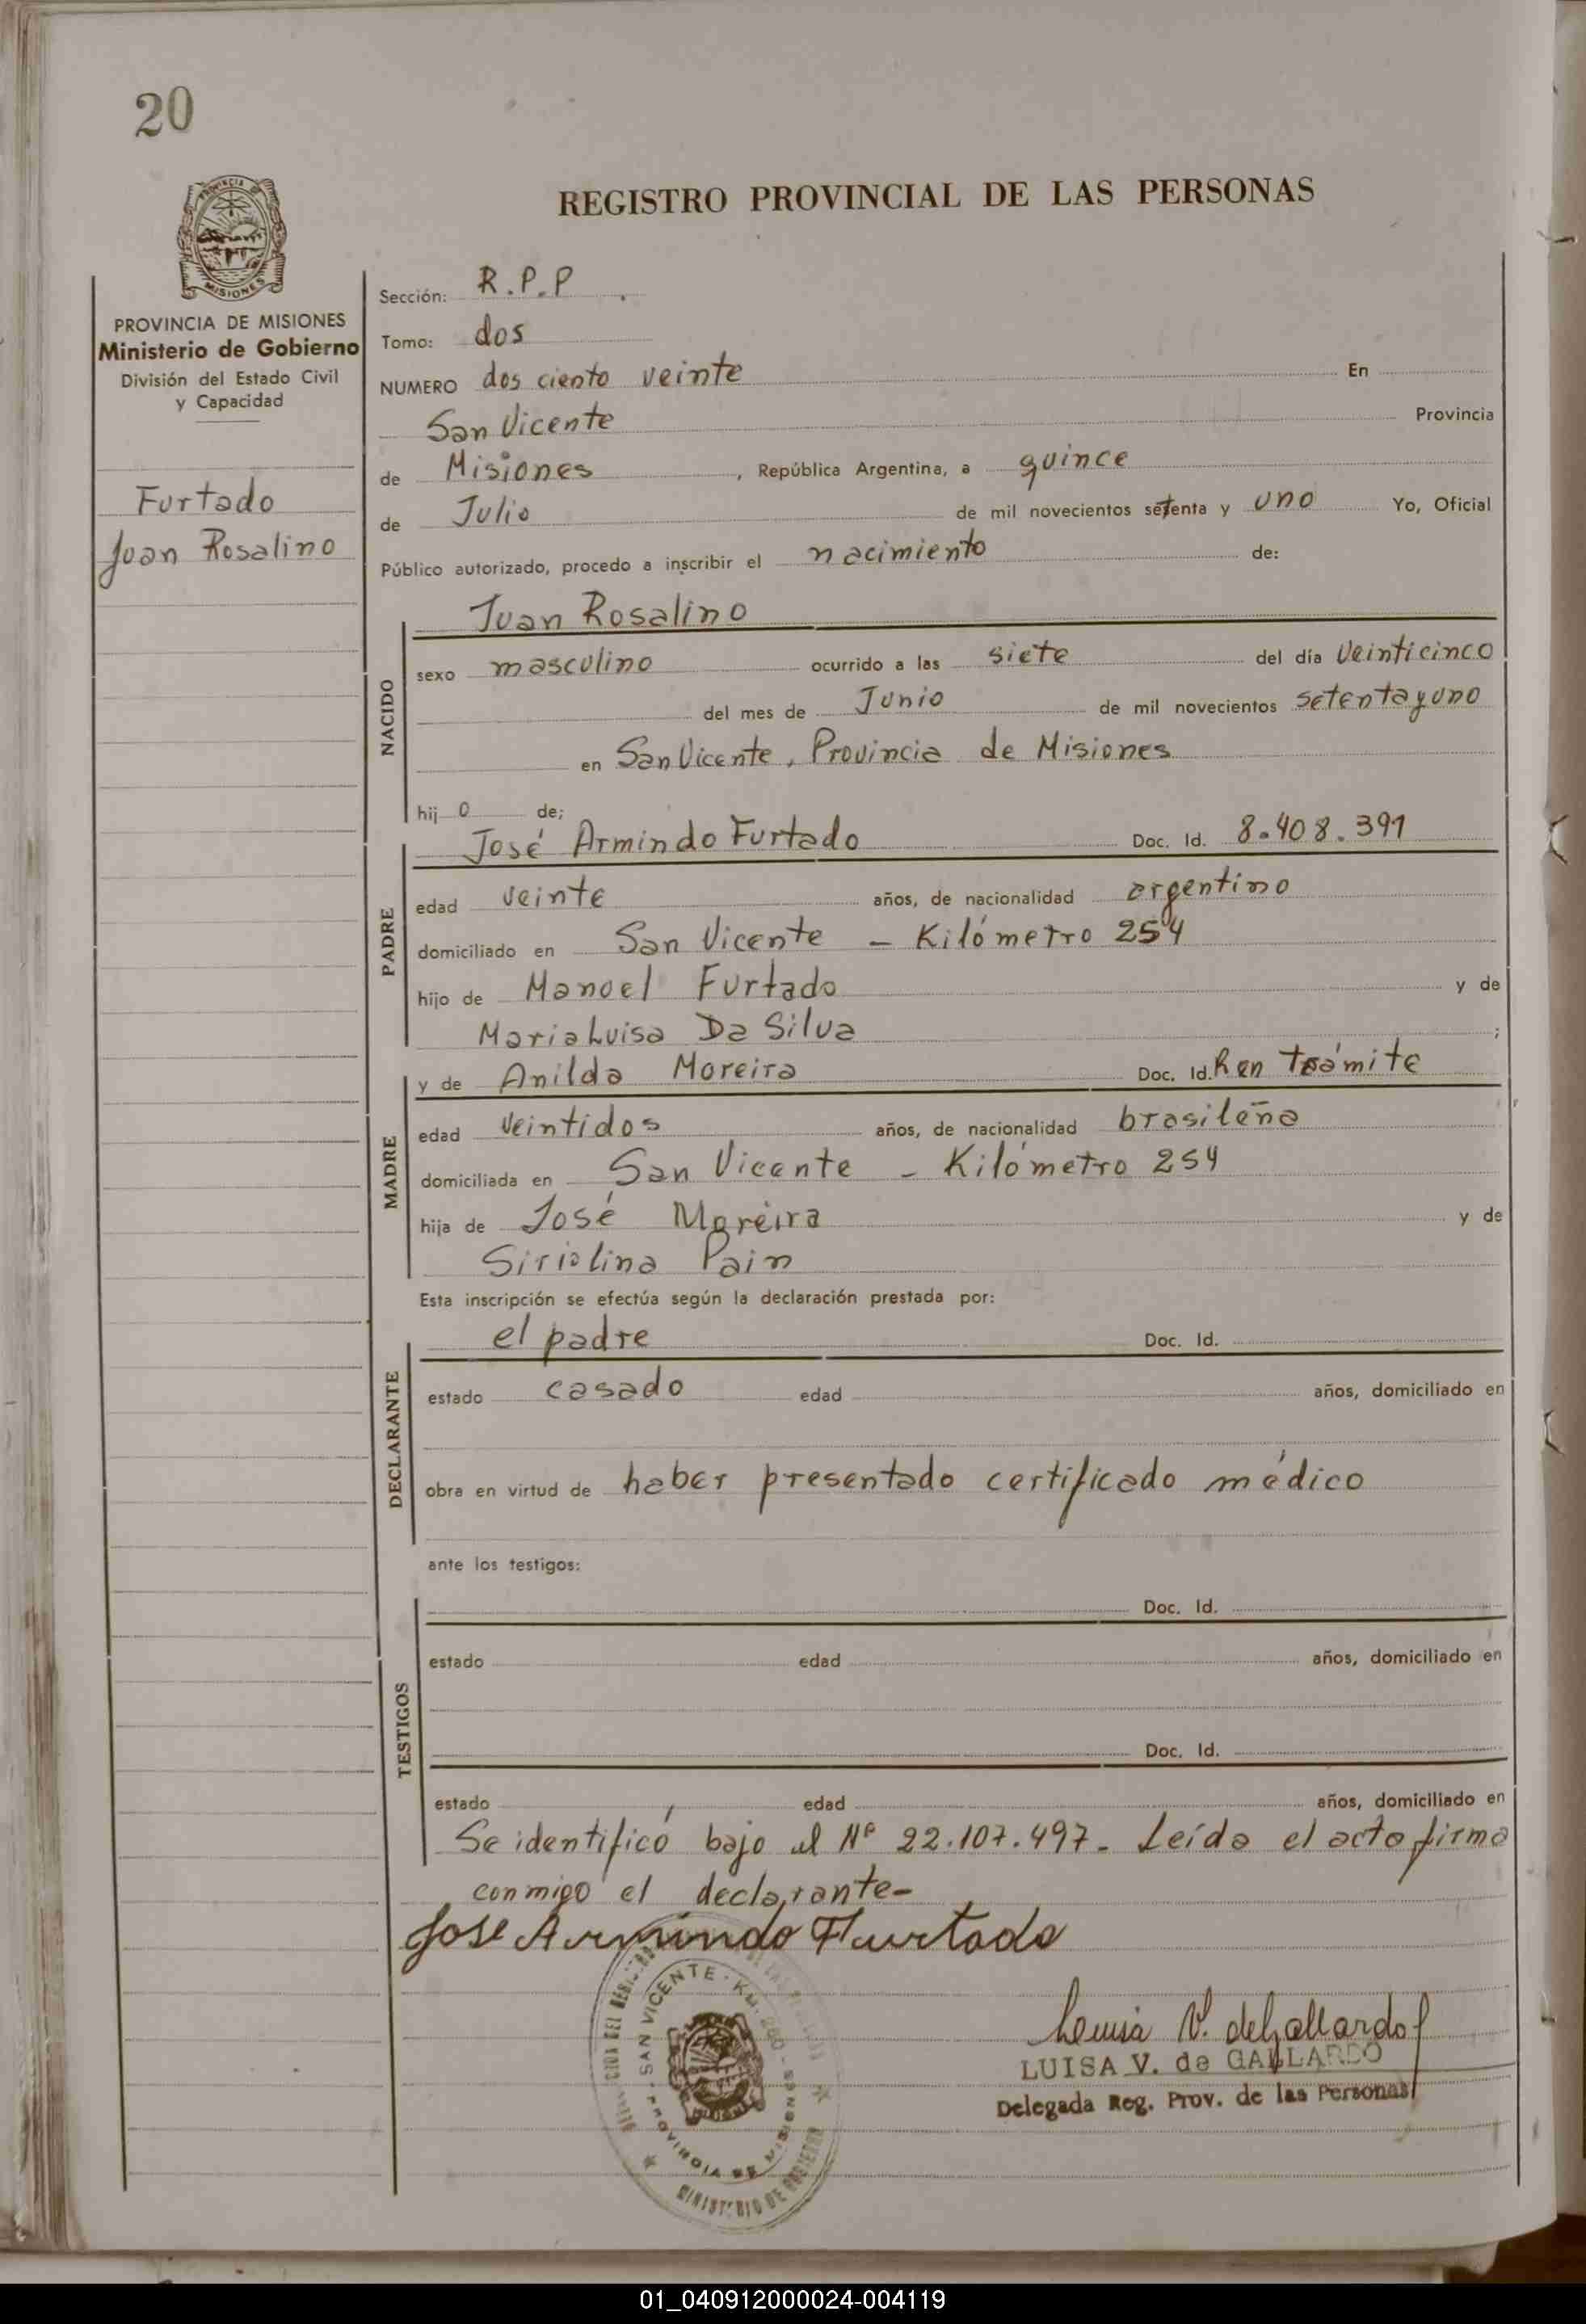 20
PROVINCIA DE MISIONES
REGISTRO PROVINCIAL DE LAS PERSONAS
PROVINCIA DE MISIONES
Ministerio de Gobierno
División del Estado Civil
y Capacidad
Furtado
Juan Rosalino
Sección: R.P.P.
Tomo: dos
NUMERO dos ciento veinte En
San Vicente Provincia
de Misiones, República Argentina, a quince
de Julio de mil novecientos setenta y uno Yo, Oficial
Público autorizado, procedo a inscribir el nacimiento de:
NACIDO
Juan Rosalino
sexo masculino ocurrido a las siete del día veinticinco
del mes de Junio de mil novecientos setenta y uno
en San Vicente, Provincia de Misiones
hij o de;
PADRE
José Armindo Furtado Doc. Id. 8.408.391
edad veinte años, de nacionalidad argentino
domiciliado en San Vicente - Kilómetro 254
hijo de Manoel Furtado y de
Maria Luisa Da Silva;
MADRE
y de Anilda Moreira Doc. Id. en trámite
edad veintidos años, de nacionalidad brasileña
domiciliada en San Vicente - Kilómetro 254
hija de José Moreira y de
Siriolina Pain
Esta inscripción se efectúa según la declaración prestada por:
DECLARANTE
el padre Doc. Id.
estado casado edad años, domiciliado en
obra en virtud de haber presentado certificado médico
ante los testigos:
TESTIGOS
Doc. Id.
estado edad años, domiciliado en
Doc. Id.
estado edad años, domiciliado en
Se identificó bajo el Nº 22.107.497- Leída el acta firma
conmigo el declarante-
Jose Armindo Furtado
SAN VICENTE - KM. - PROVINCIA DE MISIONES
MINISTERIO DE GOBIERNO
Luisa V. de Gallardo
LUISA V. de GALLARDO
Delegada Reg. Prov. de las Personas
01_040912000024-004119